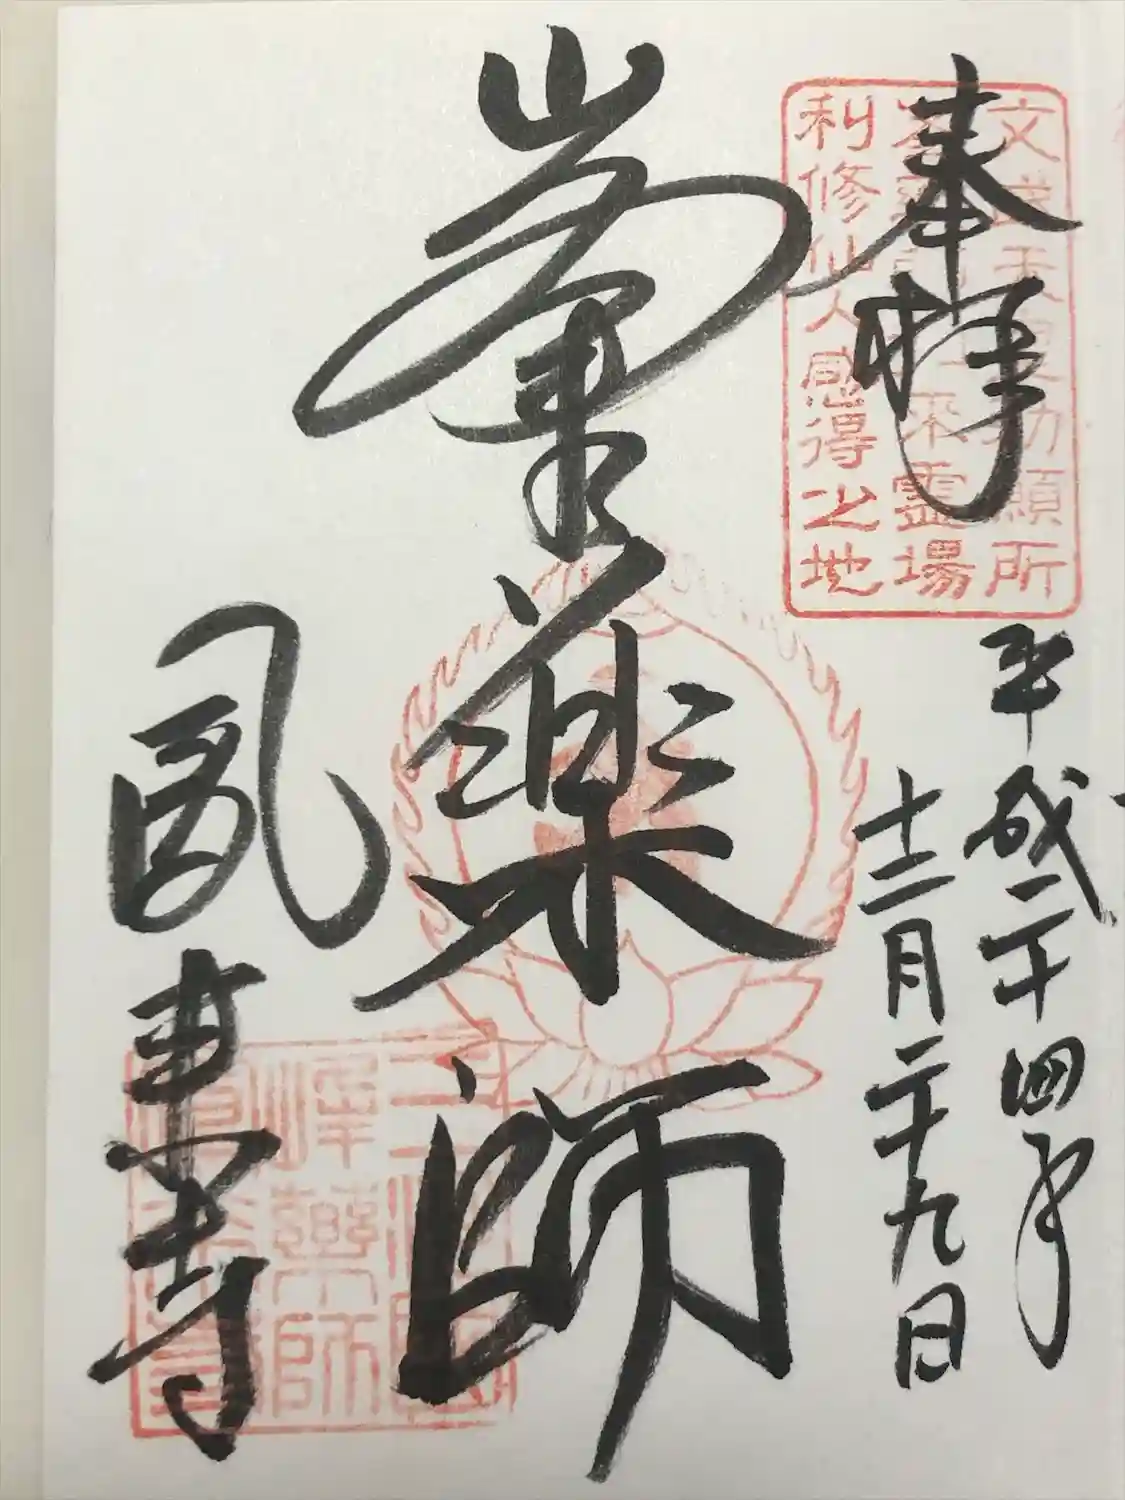 奉拝
文武天皇勅願所
薬師如来霊場
利修仙人感得之地
平成二十四年
十二月二十九日
峯薬師
鳳来寺
三河国
峰薬師
鳳来寺